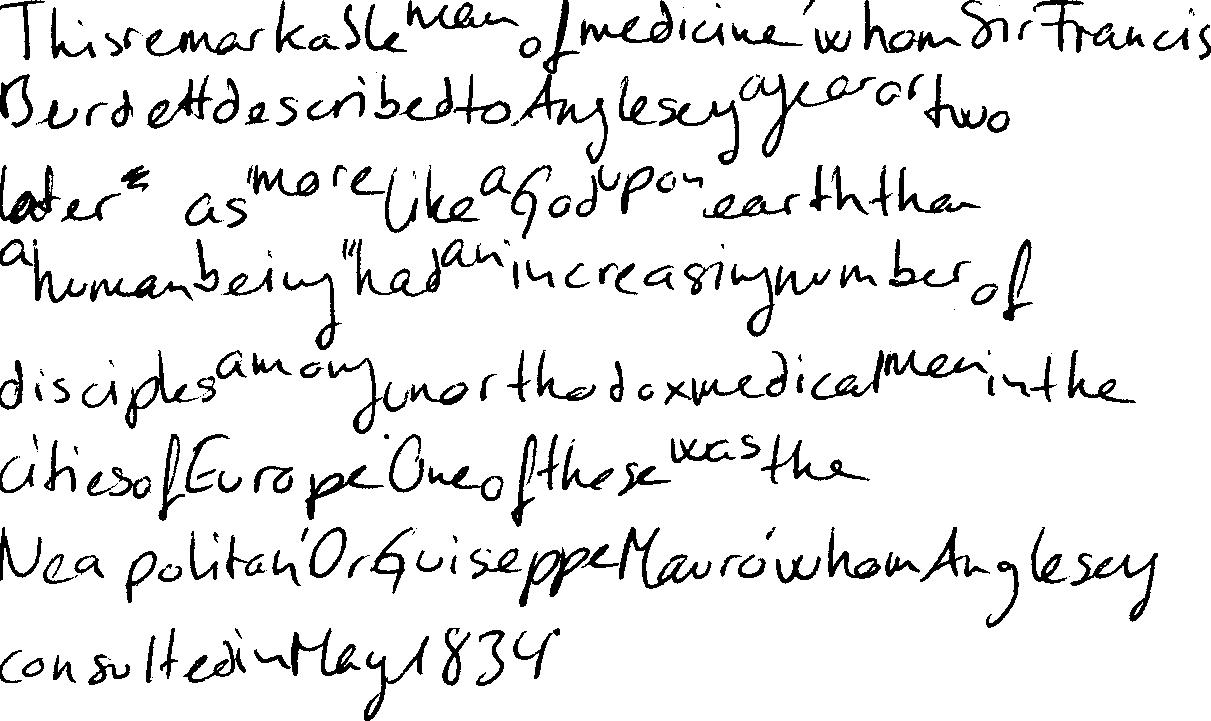 This remarkable man of medicine, whom Sir Francis
Burdett described to Anglesey a year or two
later as "more like a God upon earth than
a human being" had an increasing number of
disciples among unorthodox medical men in the
cities of Europe. One of these was the
Neapolitan, Dr Guiseppe Mauro, whom Anglesey
consulted in May 1834